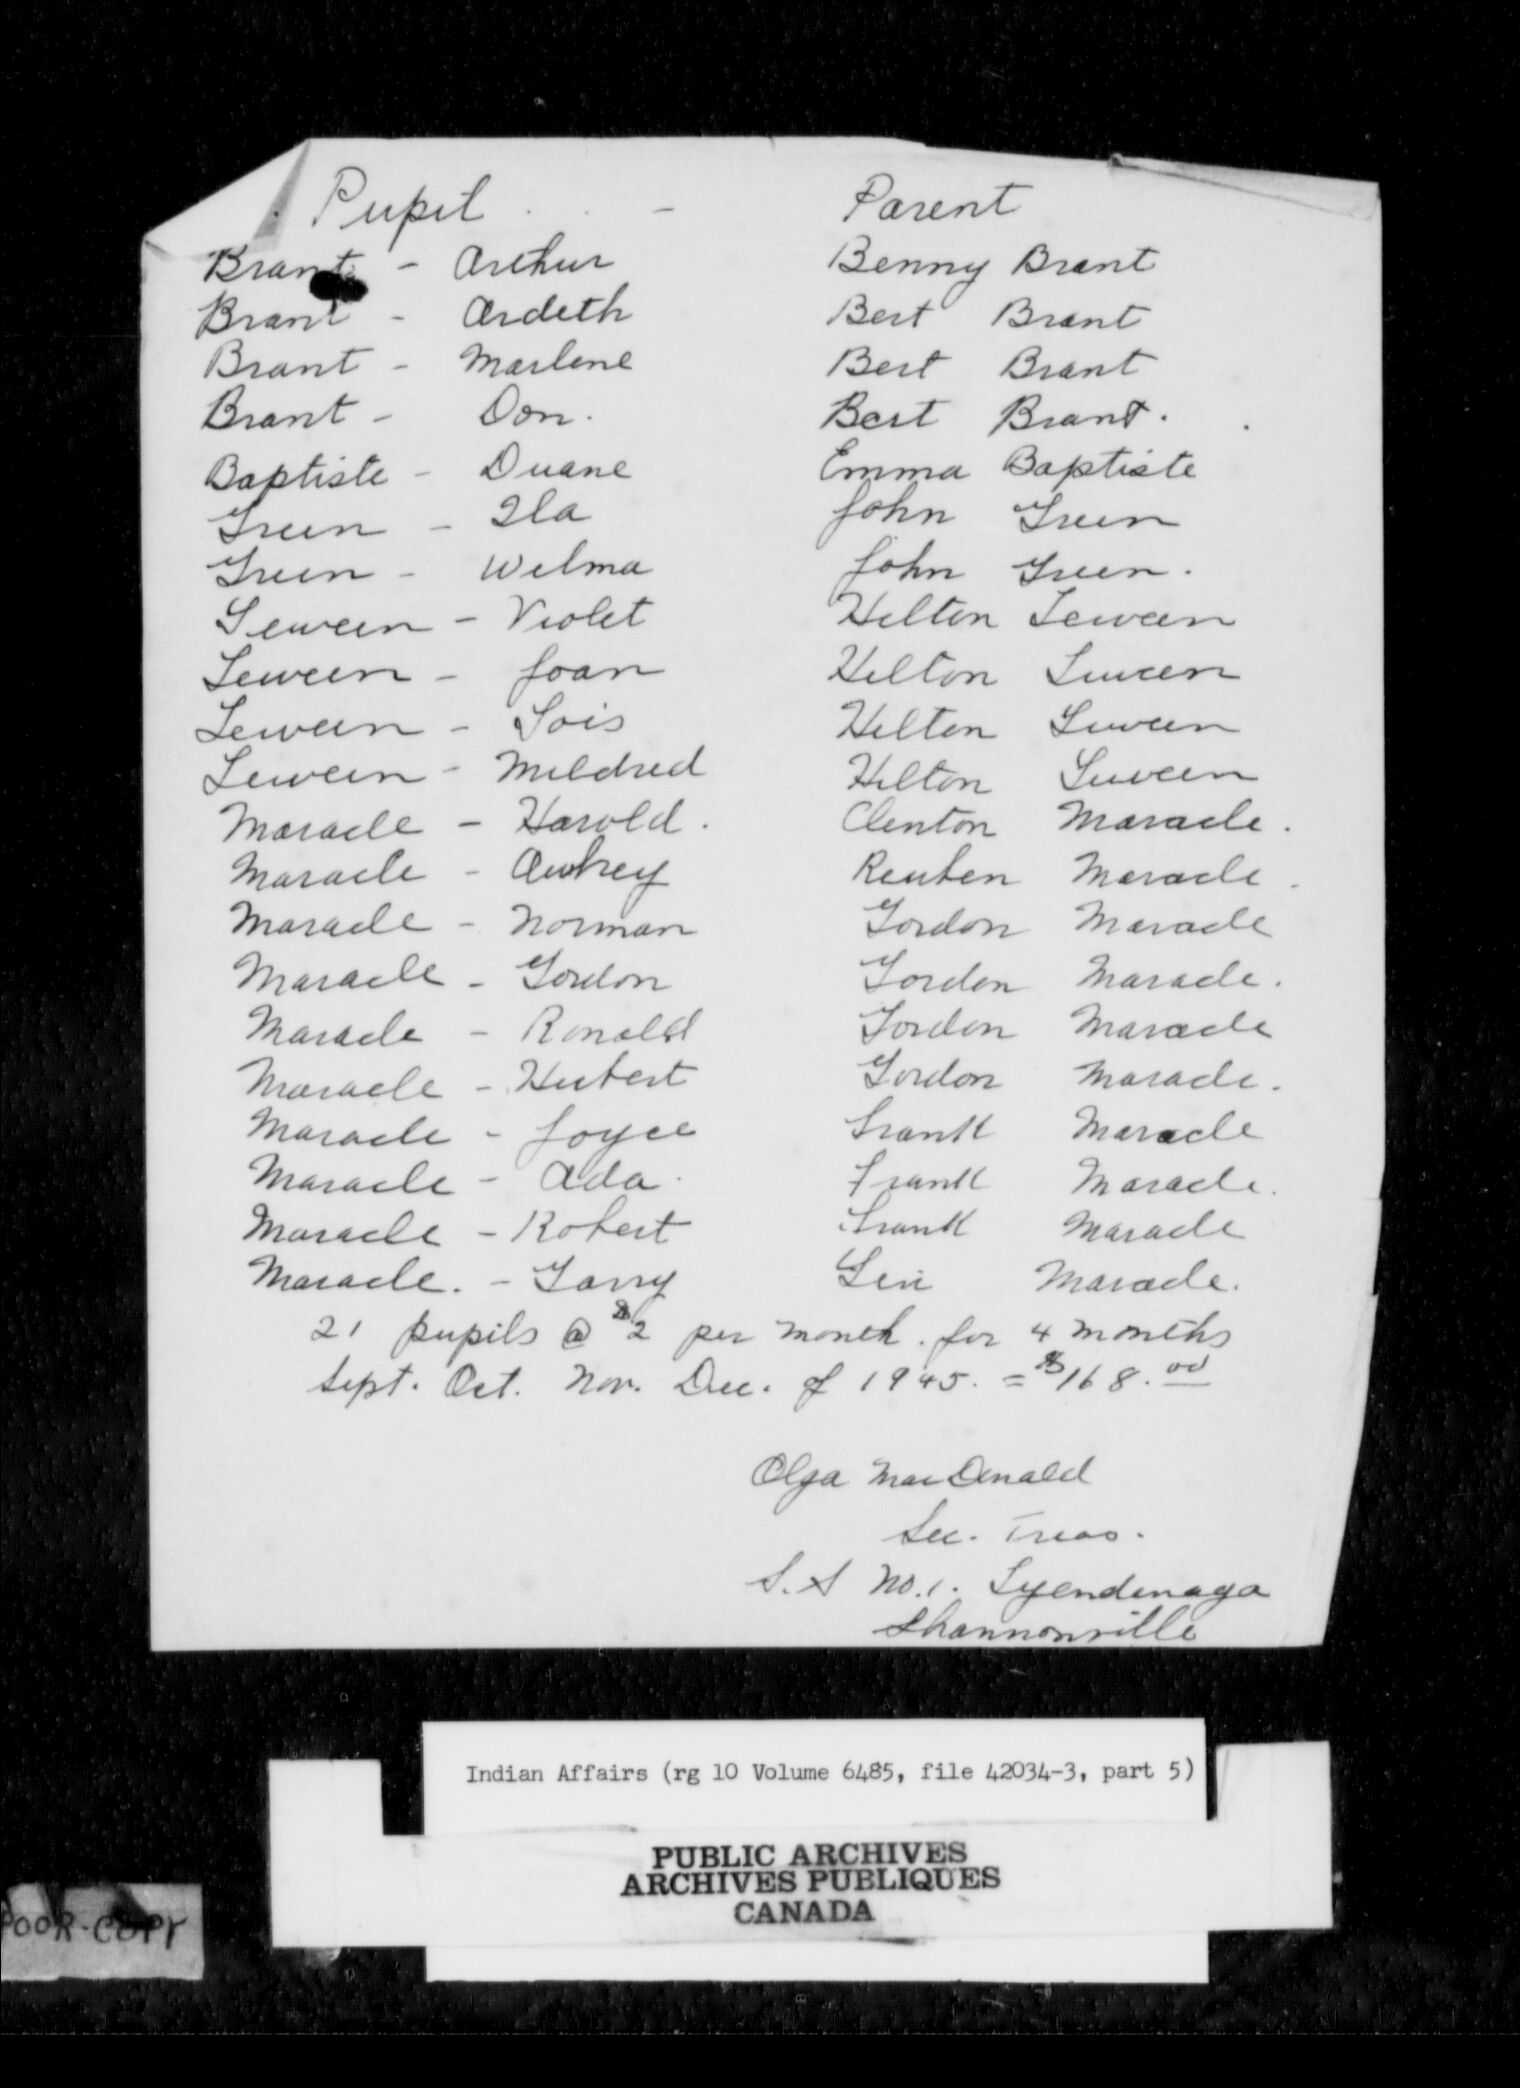 Pupil - Parent
Brant - Arthur Benny Brant
Brant - Ardeth Bert Brant
Brant - Marlene Bert Brant
Brant - Don. Bert Brant.
Baptiste - Duane Emma Baptiste
Green - Ila John Green
Green - Wilma John Green.
Leween - Violet Hilton Leween
Leween - Joan Hilton Leween
Leween - Lois Hilton Leween
Leween - Mildred Hilton Leween
Maracle - Harold. Clenton Maracle.
Maracle - Aubrey Reuben Maracle.
Maracle - Norman Gordon Maracle
Maracle - Gordon Gordon Maracle.
Maracle - Ronald Gordon Maracle
Maracle - Hubert Gordon Maracle.
Maracle - Joyce Frank Maracle
Maracle - Ada. Frank Maracle.
Maracle - Robert Frank Maracle
Maracle. - Garry Maracle.
21 pupils @ $2 per month. for 4 months
Sept. Oct. Nov. Dec. of 1945. = $168.00
Olga MacDonald
Sec. Treas.
S.S No.1. Tyendinaga
Shannonville
Indian Affairs (rg 10 Volume 6485, file 42034-3, part 5)
PUBLIC ARCHIVES
ARCHIVES PUBLIQUES
CANADA
POOR-COPY